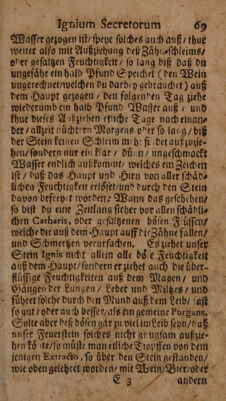 Ignium Secretorum 69
Wasser gezogen ist/ speye solches auch auß/ thue
weiter also mit Außziehung deß Zähneschleims/
oder gesaltzen Feuchtigkeit/ so lang biß daß du
ungefähr ein halb Pfund Speichel (den Wein
ungerechnet/ welchen du darbey gebrauchet) auß
dem Haupt gezogen/ den folgenden Tag ziehe
wiederumb ein halb Pfund Wasser auß/ und
thue dieses Außziehen etliche Tage nach einan-
der/ allzeit nüchtern Morgens oder so lang/ biß
der Stein keinen Schleim mehr findet außzuzie-
hen/ sondern nur ein klar/ dünn/ ungeschmackt
Wasser endlich ankommt/ welches ein Zeichen
ist/ daß das Haupt und Hirn von aller schäd-
lichen Feuchtigkeit erlöset/ und durch den Stein
davon befreyet worden; Wann das geschehen/
so bist du eine Zeitlang sicher vor allen schädli-
chen Catharis, oder gesaltzenen bösen Flüssen/
welche dir auß dem Haupt auff die Zähne fallen/
und Schmertzen verursachen. Es ziehet unser
Stein Ignis nicht allein alle böse Feuchtigkeit
auß dem Haupt/ sondern er ziehet auch die über-
flüssige Feuchtigkeiten auß dem Magen/ und
Hängen der Lungen/ Leber und Miltzes/ und
führet solche durch den Mund auß dem Leib/ fast
so gut/ oder auch besser/ als ein gemeine Purgans.
Solte aber deß bösen gar zu viel im Leib seyn/ daß
unser Feuerstein solches nicht gnugsam außzie-
hen könte/ so müste man etliche Tropffen von dem
jenigen Extracto, so über den Stein gestanden/
wie oben gelehret worden/ mit Wein/ Bier/ oder
E 3 andern